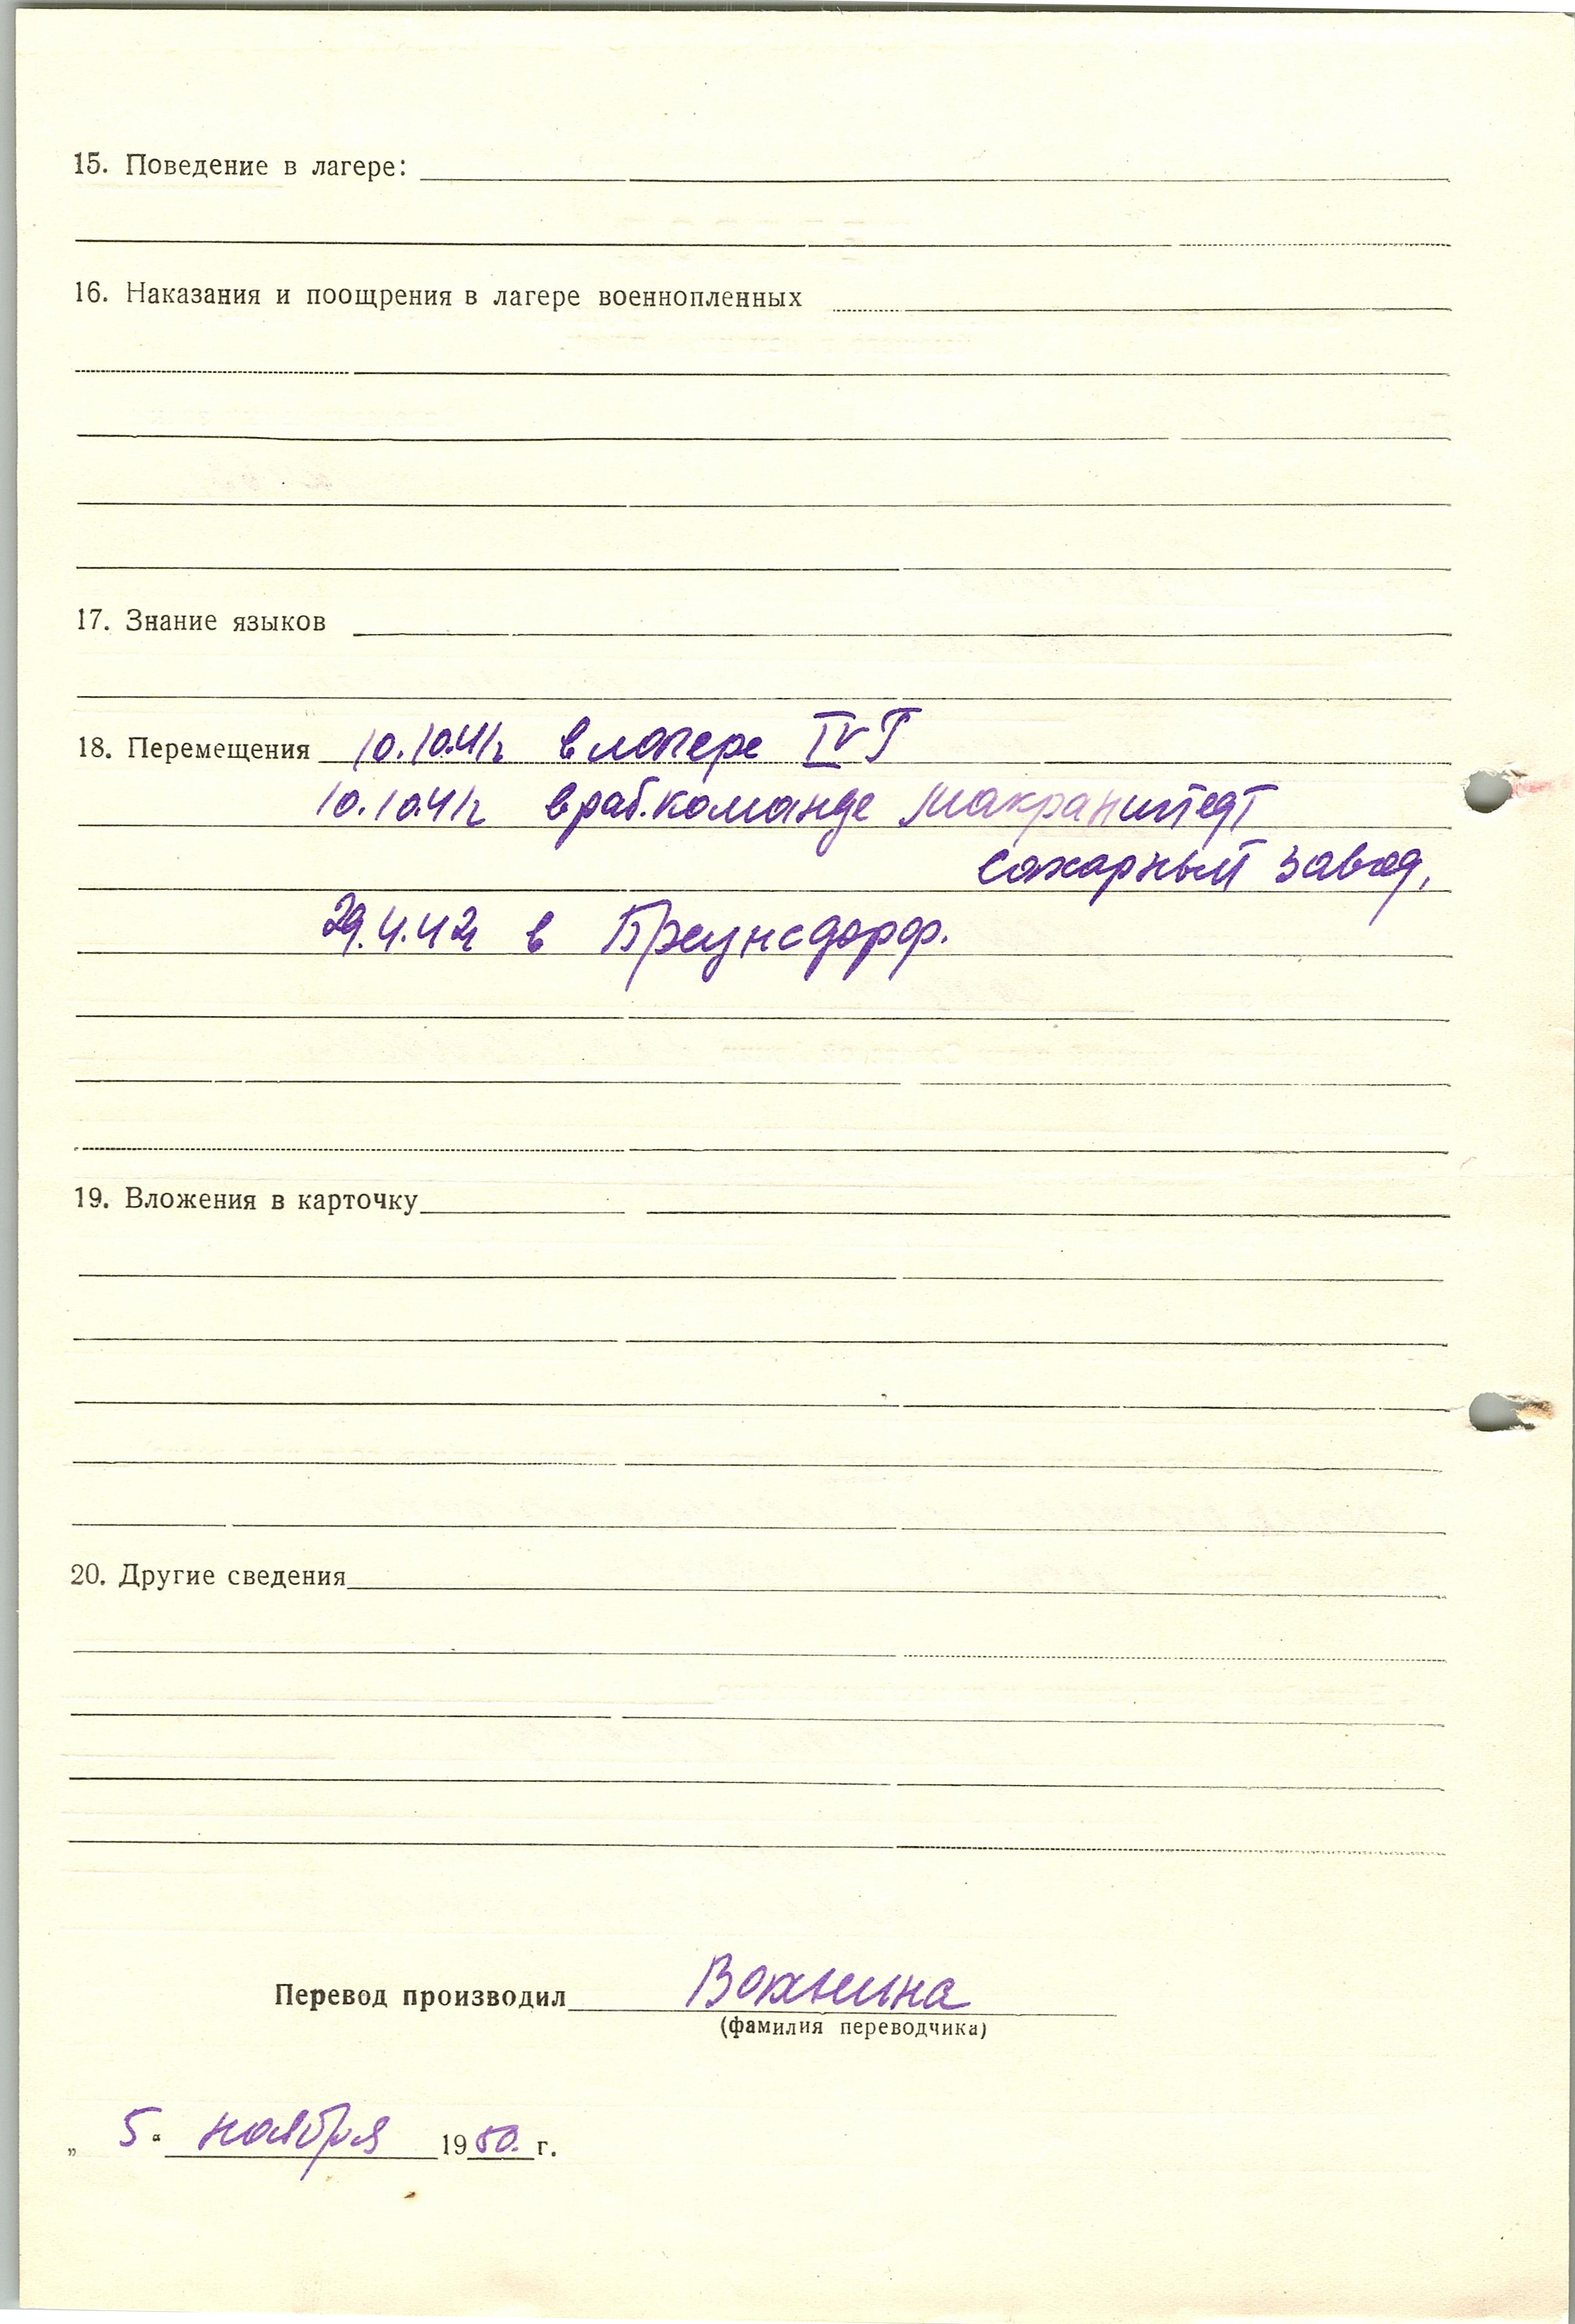 15. Поведение в лагере:
16. Наказания и поощрения в лагере военнопленных
17. Знание языков
18. Перемещения 10.10.41г в лагере IV Г
10.10.41г в раб.команде Макранштедт
сахарный завод,
29.4.42г в Бреунсдорф.
19. Вложения в карточку
20. Другие сведения
Перевод производил Вохнина
(фамилия переводчика)
„ 5. “ ноября 1950. г.